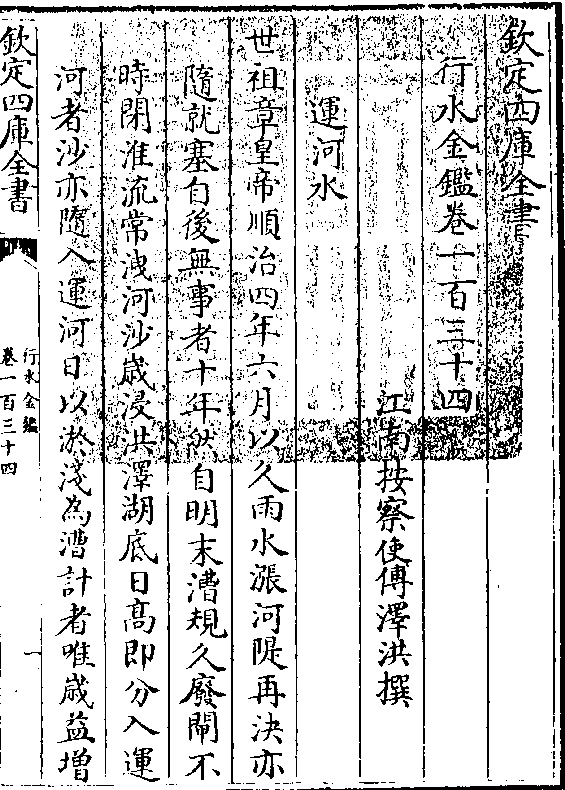 欽定四庫全書
行水金鑑卷一百三十四
江南按察使傅澤洪撰
運河水
世祖章皇帝順治四年六月以久雨水漲河隄再決亦
隨就塞自後無事者十年然自明末漕規久廢閘不
時閉淮流常洩河沙歲浸洪澤湖底日高即分入運
河者沙亦隨入運河日以淤淺為漕計者唯歲益增
欽定四庫全書
行水金鑑
卷一百三十四
一